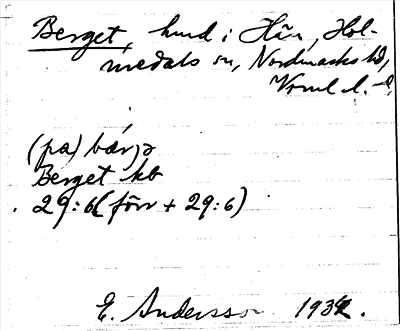 Berget, hmd i Hån, Hol-
medals sn, Nordmarks hd,
Vrml. l.
(på) bær̥ʝə
Berget kb
29:6 (förr + 29:6)
E. Andersson 1932.